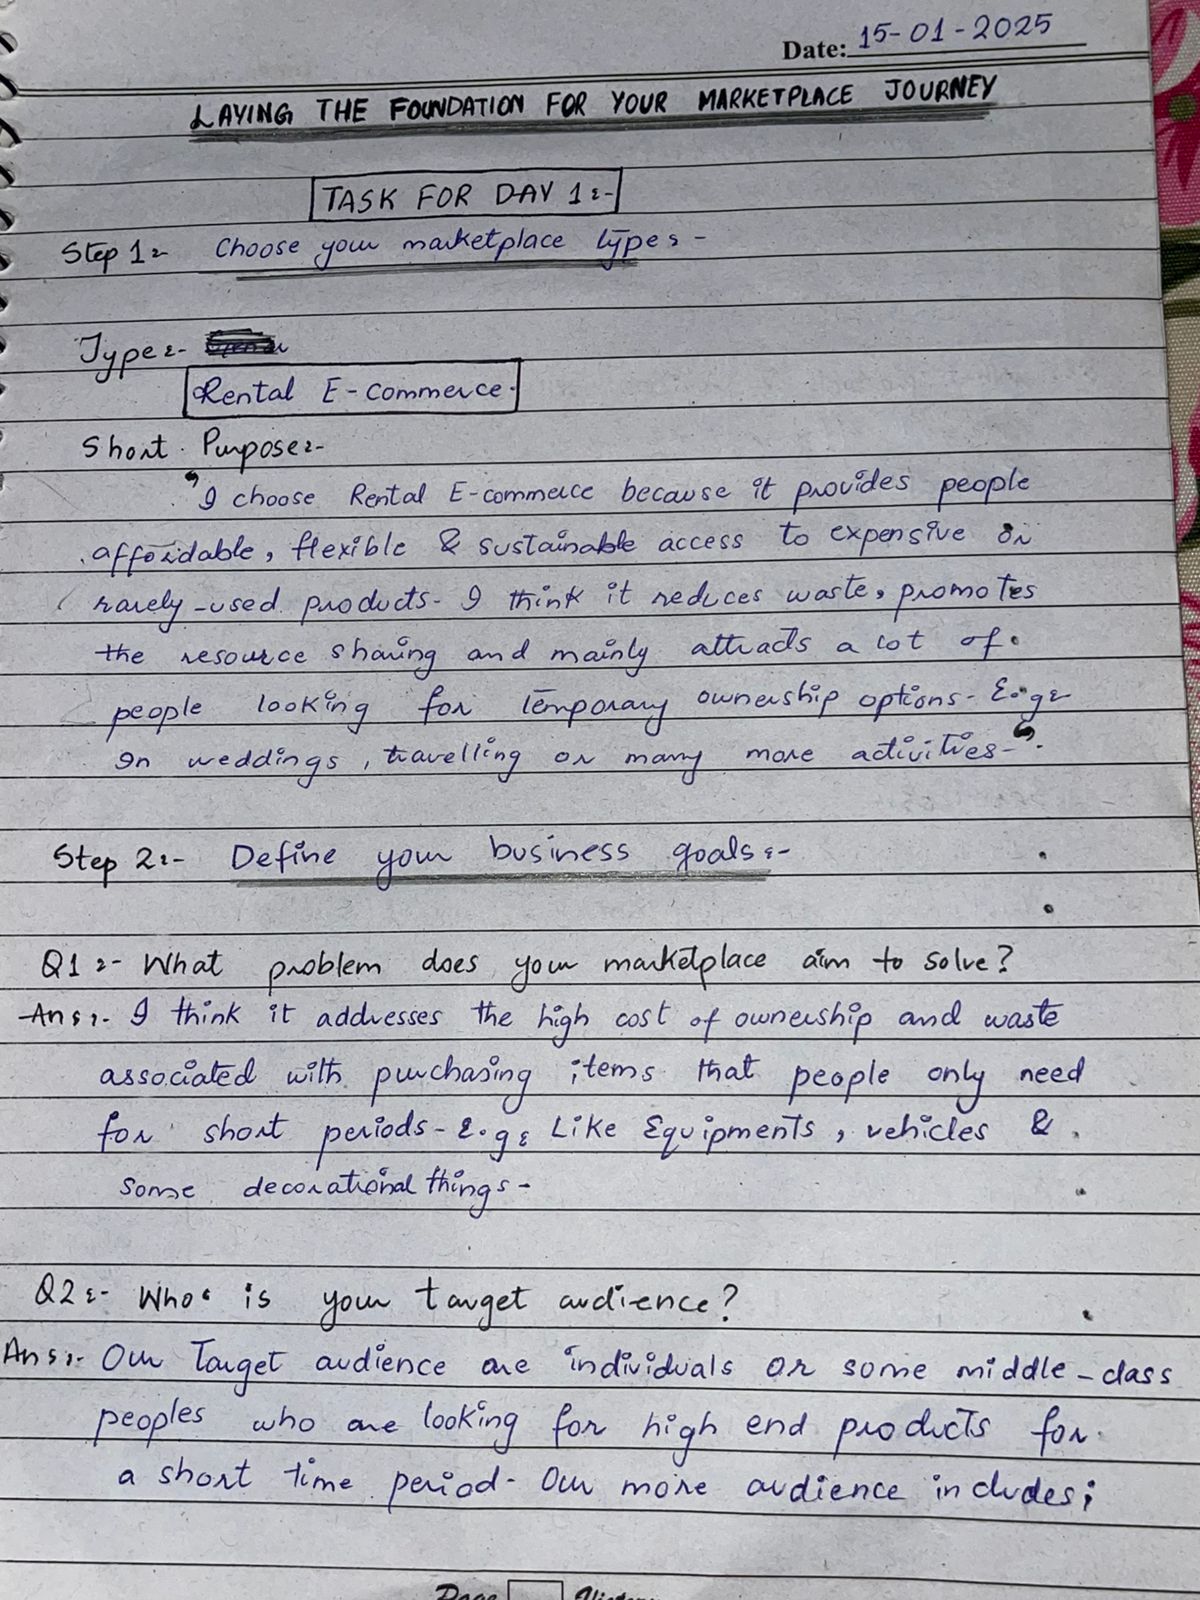 Date: 15-01-2025
LAYING THE FOUNDATION FOR YOUR MARKETPLACE JOURNEY
TASK FOR DAY 1:-
Step 1:- Choose your marketplace types-
Type:-
Rental E-commerce.
Short Purpose:-
"I choose Rental E-commerce because it provides people
affordable, flexible & sustainable access to expensive or
rarely-used products- I think it reduces waste, promotes
the resource sharing and mainly attracts a lot of
people looking for temporary ownership options- E.g:
In weddings, travelling or many more activities-".
Step 2:- Define your business goals:-
Q1:- What problem does your marketplace aim to solve?
Ans:- I think it addresses the high cost of ownership and waste
associated with purchasing items that people only need
for short periods- E.g: Like Equipments, vehicles &
some decorational things-
Q2:- Who is your target audience?
Ans:- Our Target audience are individuals or some middle-class
peoples who are looking for high end products for
a short time period- Our more audience includes;
Page